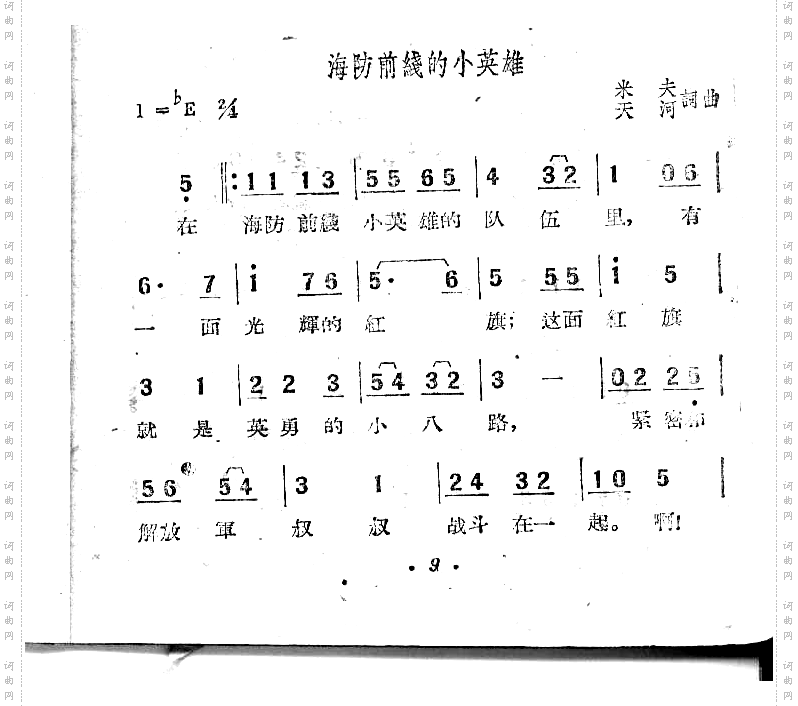 海防前綫的小英雄
1 = bE 2/4
米夫 天河 詞曲
5 ‖: 1 1 1 3 | 5 5 6 5 | 4 3 2 | 1 0 6 |
在 海防 前綫 小英 雄的 队 伍 里, 有
6· 7 | i 7 6 | 5· 6 | 5 5 5 | i 5 |
一 面 光 輝的 紅 旗; 这面 紅 旗
3 1 | 2 2 3 | 5 4 3 2 | 3 — | 0 2 2 5 |
就 是 英 勇 的 小 八 路, 紧 密和
5 6 5 4 | 3 1 | 2 4 3 2 | 1 0 5 |
解放 軍 叔 叔 战斗 在一 起。 啊!
· 9 ·
词曲网